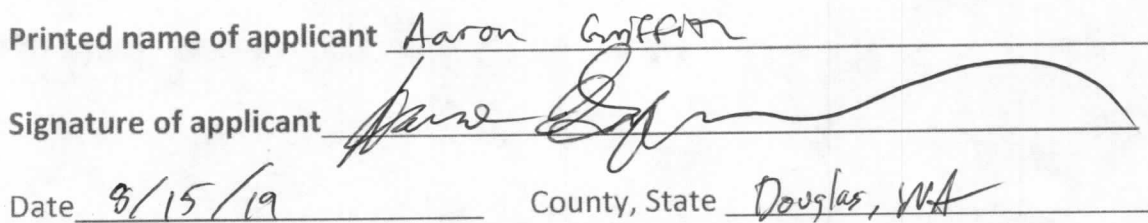 Printed name of applicant Aaron Griffith
Signature of applicant
Date 8/15/19 County, State Douglas, WA